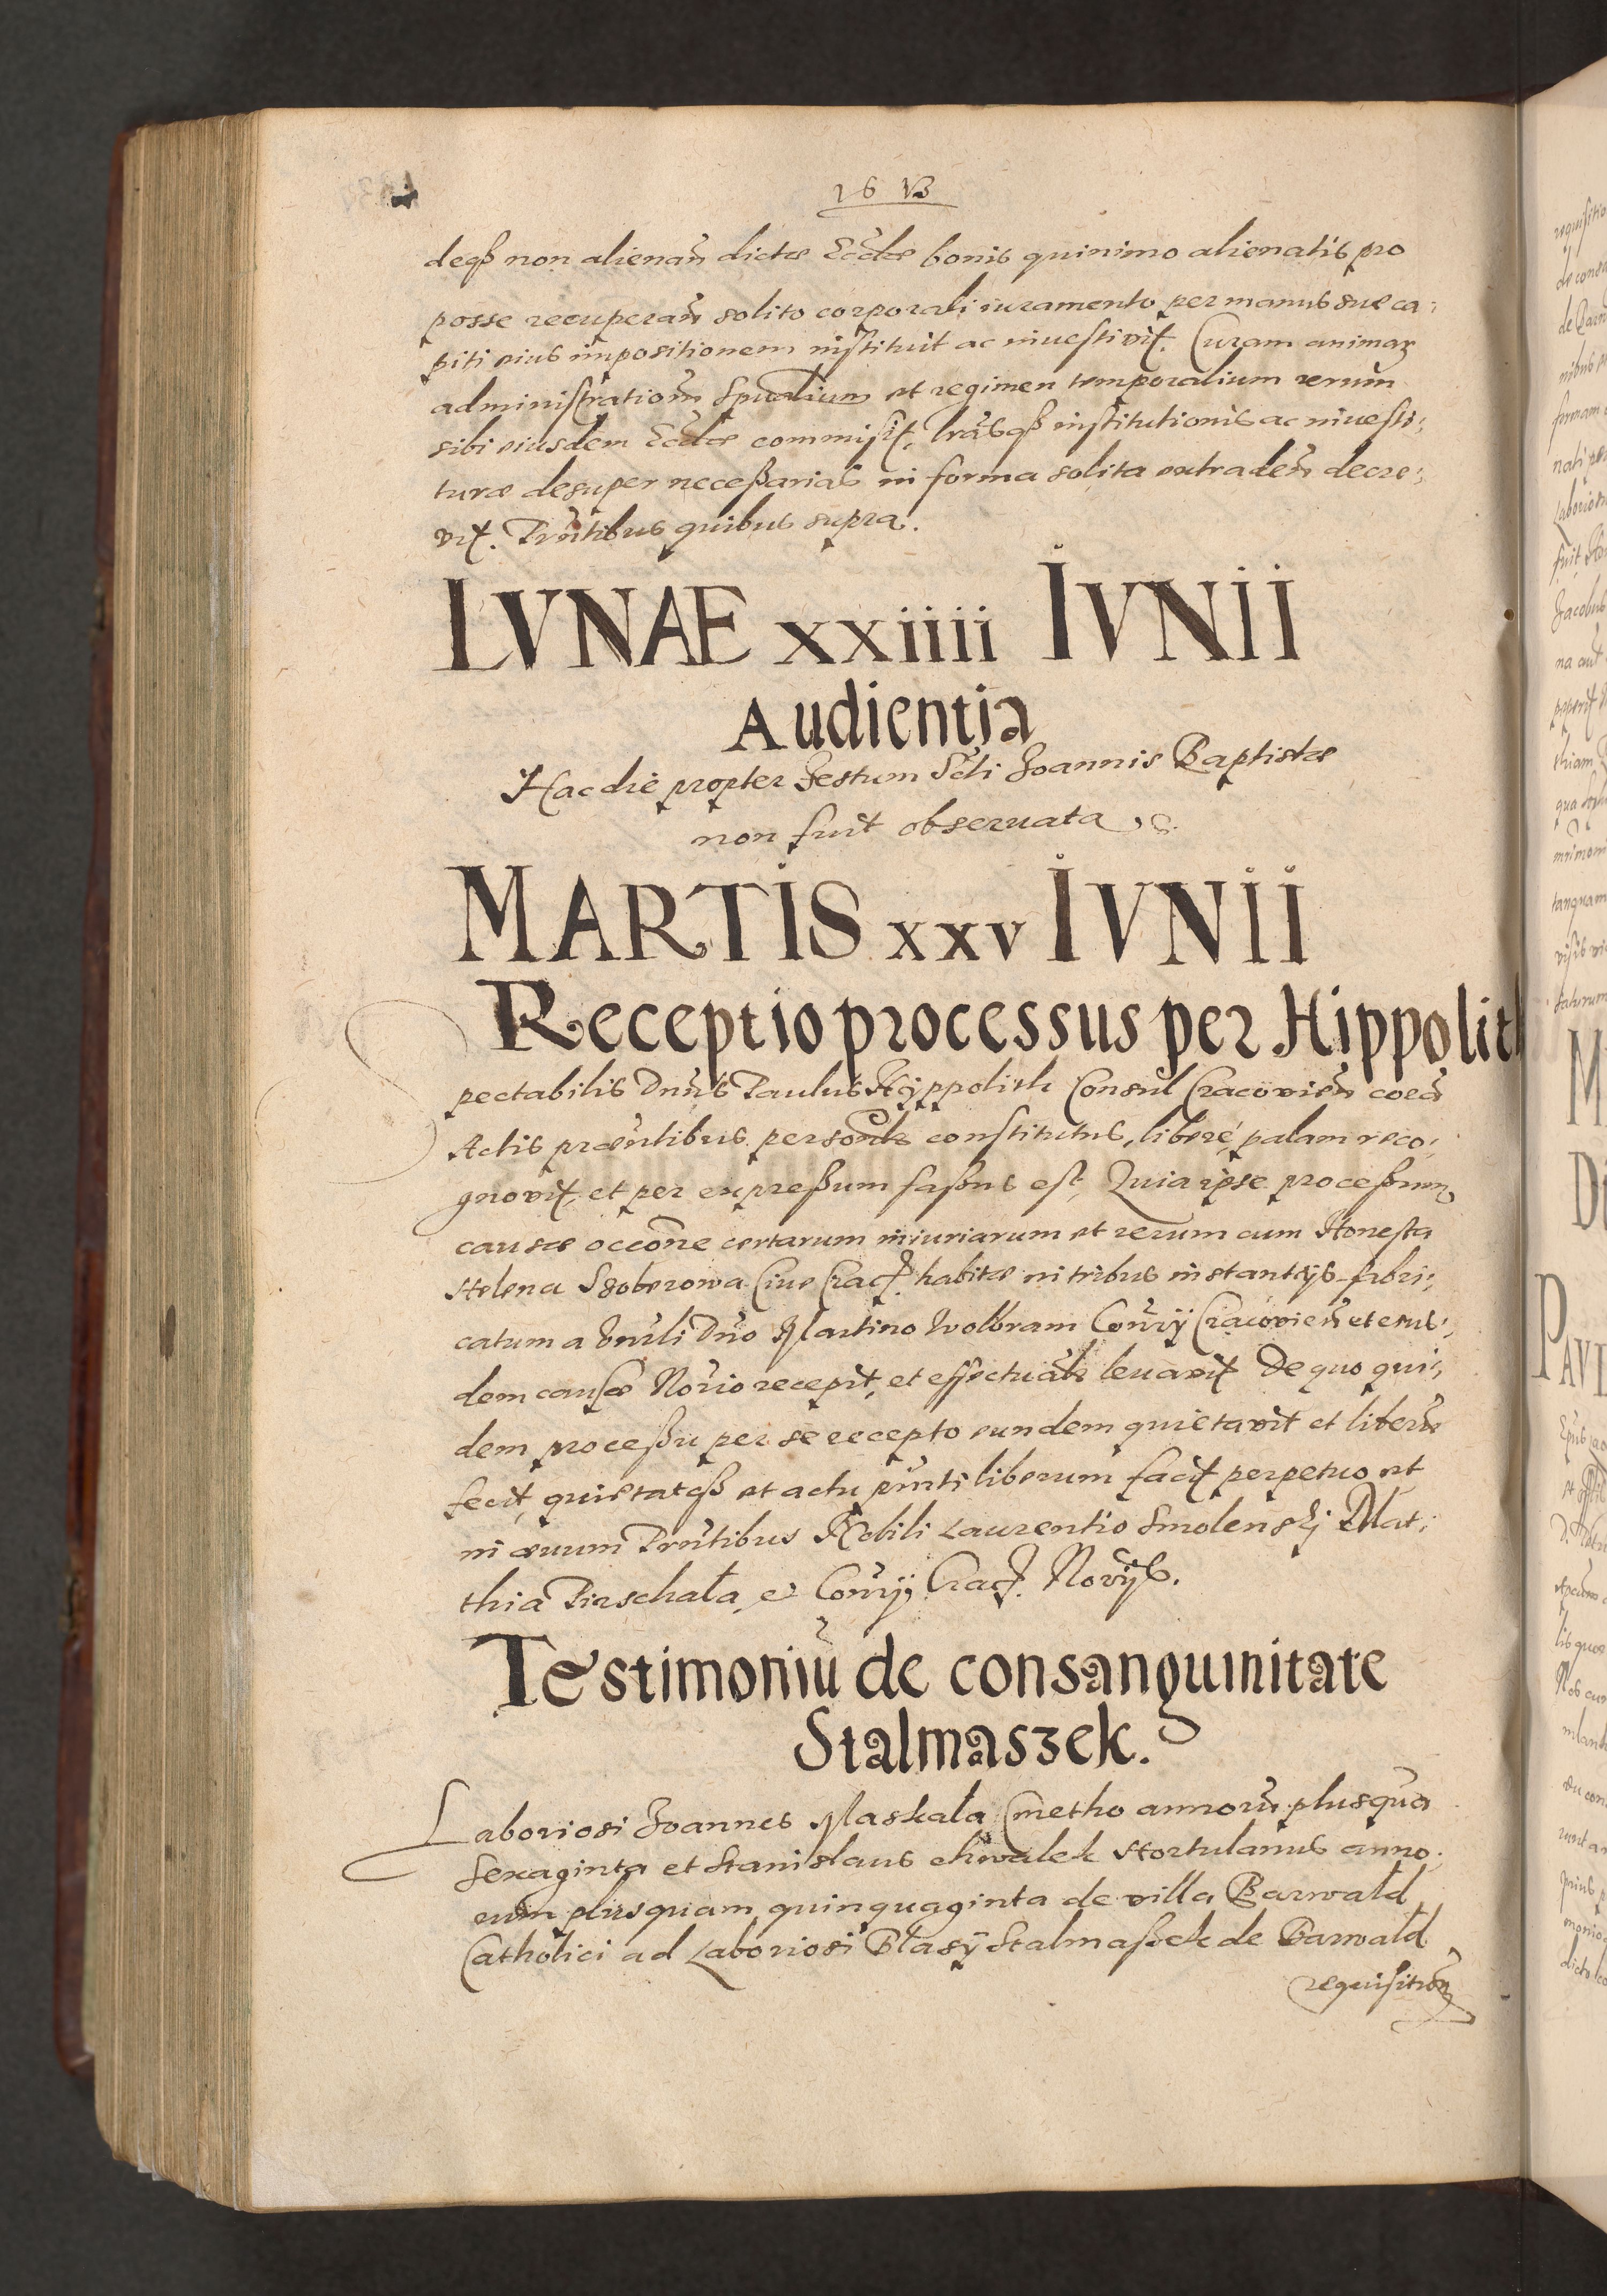 1613
deqß non alienan̄ dictæ Eccl̄æ bonis quinimo alienatis pro
posse recuperan̄ solito corporali iuramento per manus suæ ca:
piti eius impositionem instituit ac inuestivit. Curam animar
administration̄ Spūalium et regimen temporalium rerum
sibi eiusdem Eccl̄æ commisit, lrāsqß institutionis ac inuesti:
turæ desuper neceßarias in forma solita extraden̄ decre:
vit. Prn̄tibus quibus supra.
LVNAE xxiiii IVNII
Audientia
Hac die propter Festum Scti Joannis Baptistæ
non fuit obseruata
MARTIS xxv IVNII
Receptio processus per Hippolith
pectabilis Dn̄us Paulus Hyppolith Consul Cracovien̄ corā
Actis præsn̄tibus personl̄r constitutus, liberè, palam reco:
gnovit, et per expreßum faßus est, Quia ipse proceßum
causæ occōne certarum iniuriarum et rerum cum Honesta
Helena Szoberowa Ciue Crac. habitæ in tribus instantijs fabri:
catum a Dno Martino Wolbram Conrij Cracovien̄ et eius:
dem causæ Norio recepit, et effectual̄r leuavit De quo qui:
dem proceßu per se recepto eundem quietavit et liberū
fecit, quietatqß et actu prn̄ti liberum facit perpetuo et
in æuum Prn̄tibus Nobili Laurentio Smolenski Mat:
thia Pirschała, Conrij, Crac. Norijs.
Testimoniū de consanguinitate
Stalmaszek.
Laboriosi Joannes Maskała Cmetho annorū plusquā
Sexaginta et Stanislaus chwalek Hortulanus anno:
rum plusquam quinquaginta de villa Barwałd
Catholici ad Laboriosi Blasij Stalmaßek de Barwałd
requisition̄